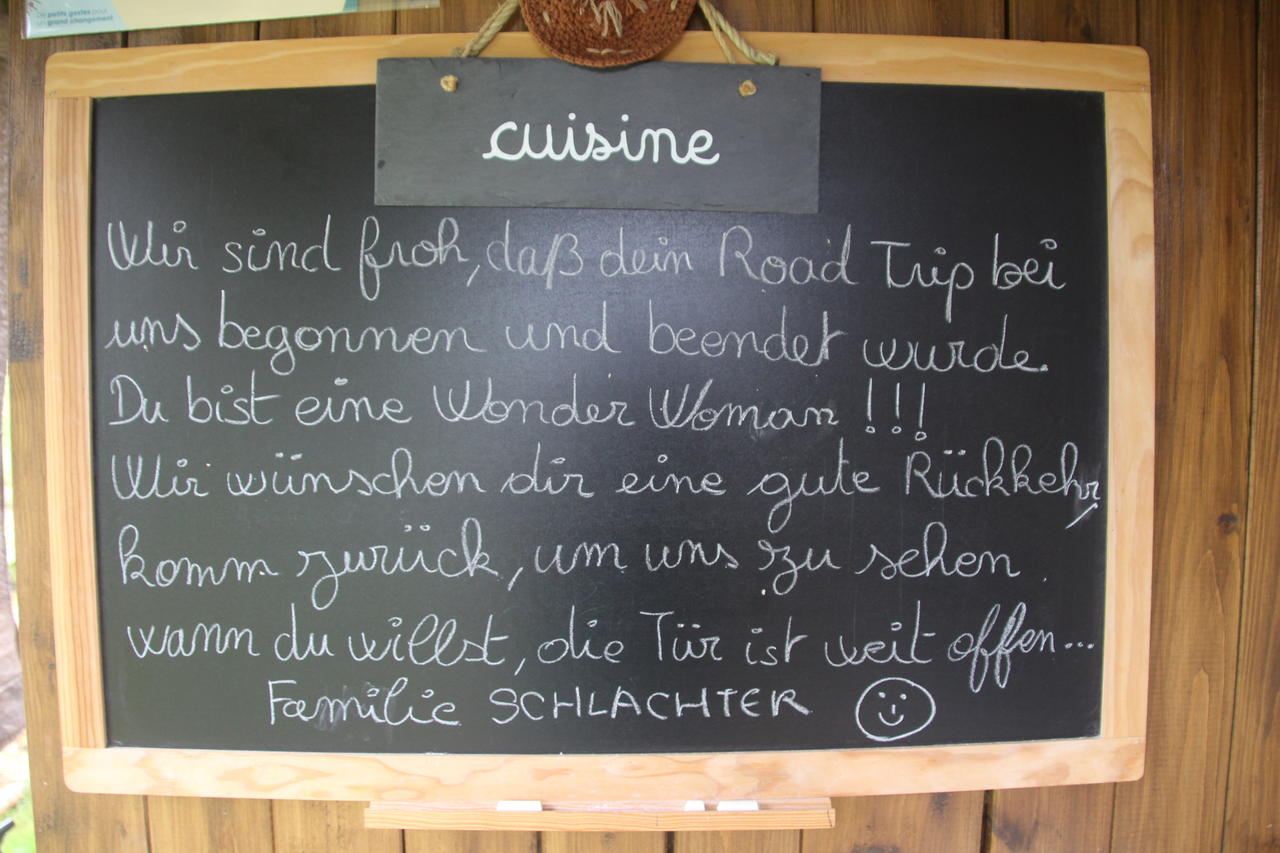 De petits gestes pour
un grand changement
cuisine
Wir sind froh, daß dein Road Trip bei
uns begonnen und beendet wurde.
Du bist eine Wonder Woman !!!
Wir wünschen dir eine gute Rückkehr,
komm zurück, um uns zu sehen
wann du willst, die Tür ist weit offen...
Familie SCHLACHTER